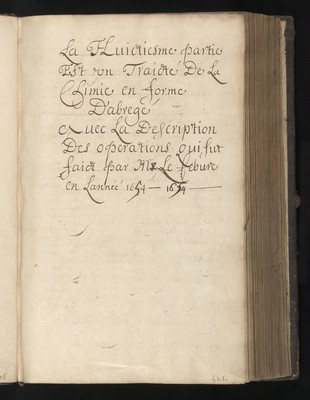 La Huictiesme partie
Est un Traicté De La
Chimie en forme
D'abregé
avec La Description
Des operations qui fut
faict par Mr Le febure
en Lannée 1654 — 1654